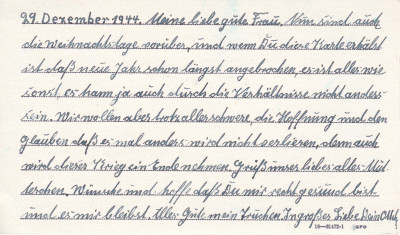 29. Dezember 1944. Meine liebe gute Frau. Nun sind auch
die Weihnachtstage vorüber, und wenn Du diese Karte erhälst
ist daß neue Jahr schon längst angebrochen, es ist alles wie
sonst, es kann ja auch durch die Verhältnisse nicht anders
sein. Wir wollen aber trotz aller schwere, die Hoffnung und den
glauben daß es mal anders wird nicht verlieren, denn auch
wird dieser Krieg ein Ende nehmen. Grüß unser liebes altes Müt-
terchen. Wünsche und hoffe daß Du mir recht gesund bist
und es mir bleibst. Alles Gute mein Trüchen. In großer Liebe Dein
16—81472-1 GPO